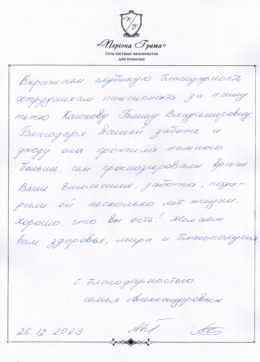 «Персона Грата»
Сеть частных пансионатов
для пожилых
Выражаем глубокую благодарность
сотрудникам пансионата за нашу
тетю Владимировну
Благодаря Вашей заботе и
уходу она прожила немного
больше, чем прогнозировали врачи
Ваше внимание, забота, пода-
рили ей несколько лет жизни.
Хорошо, что вы есть! Желаем
вам здоровья, мира и благополучия
С благодарностью
семья Александровых
26.12.2023